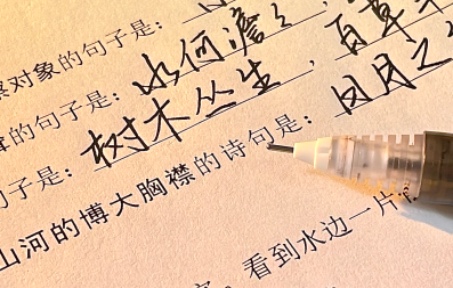 对象的句子是:
的句子是:水何澹,
句子是:树木丛生,百草
山河的博大胸襟的诗句是:日月之
,看到水边一片